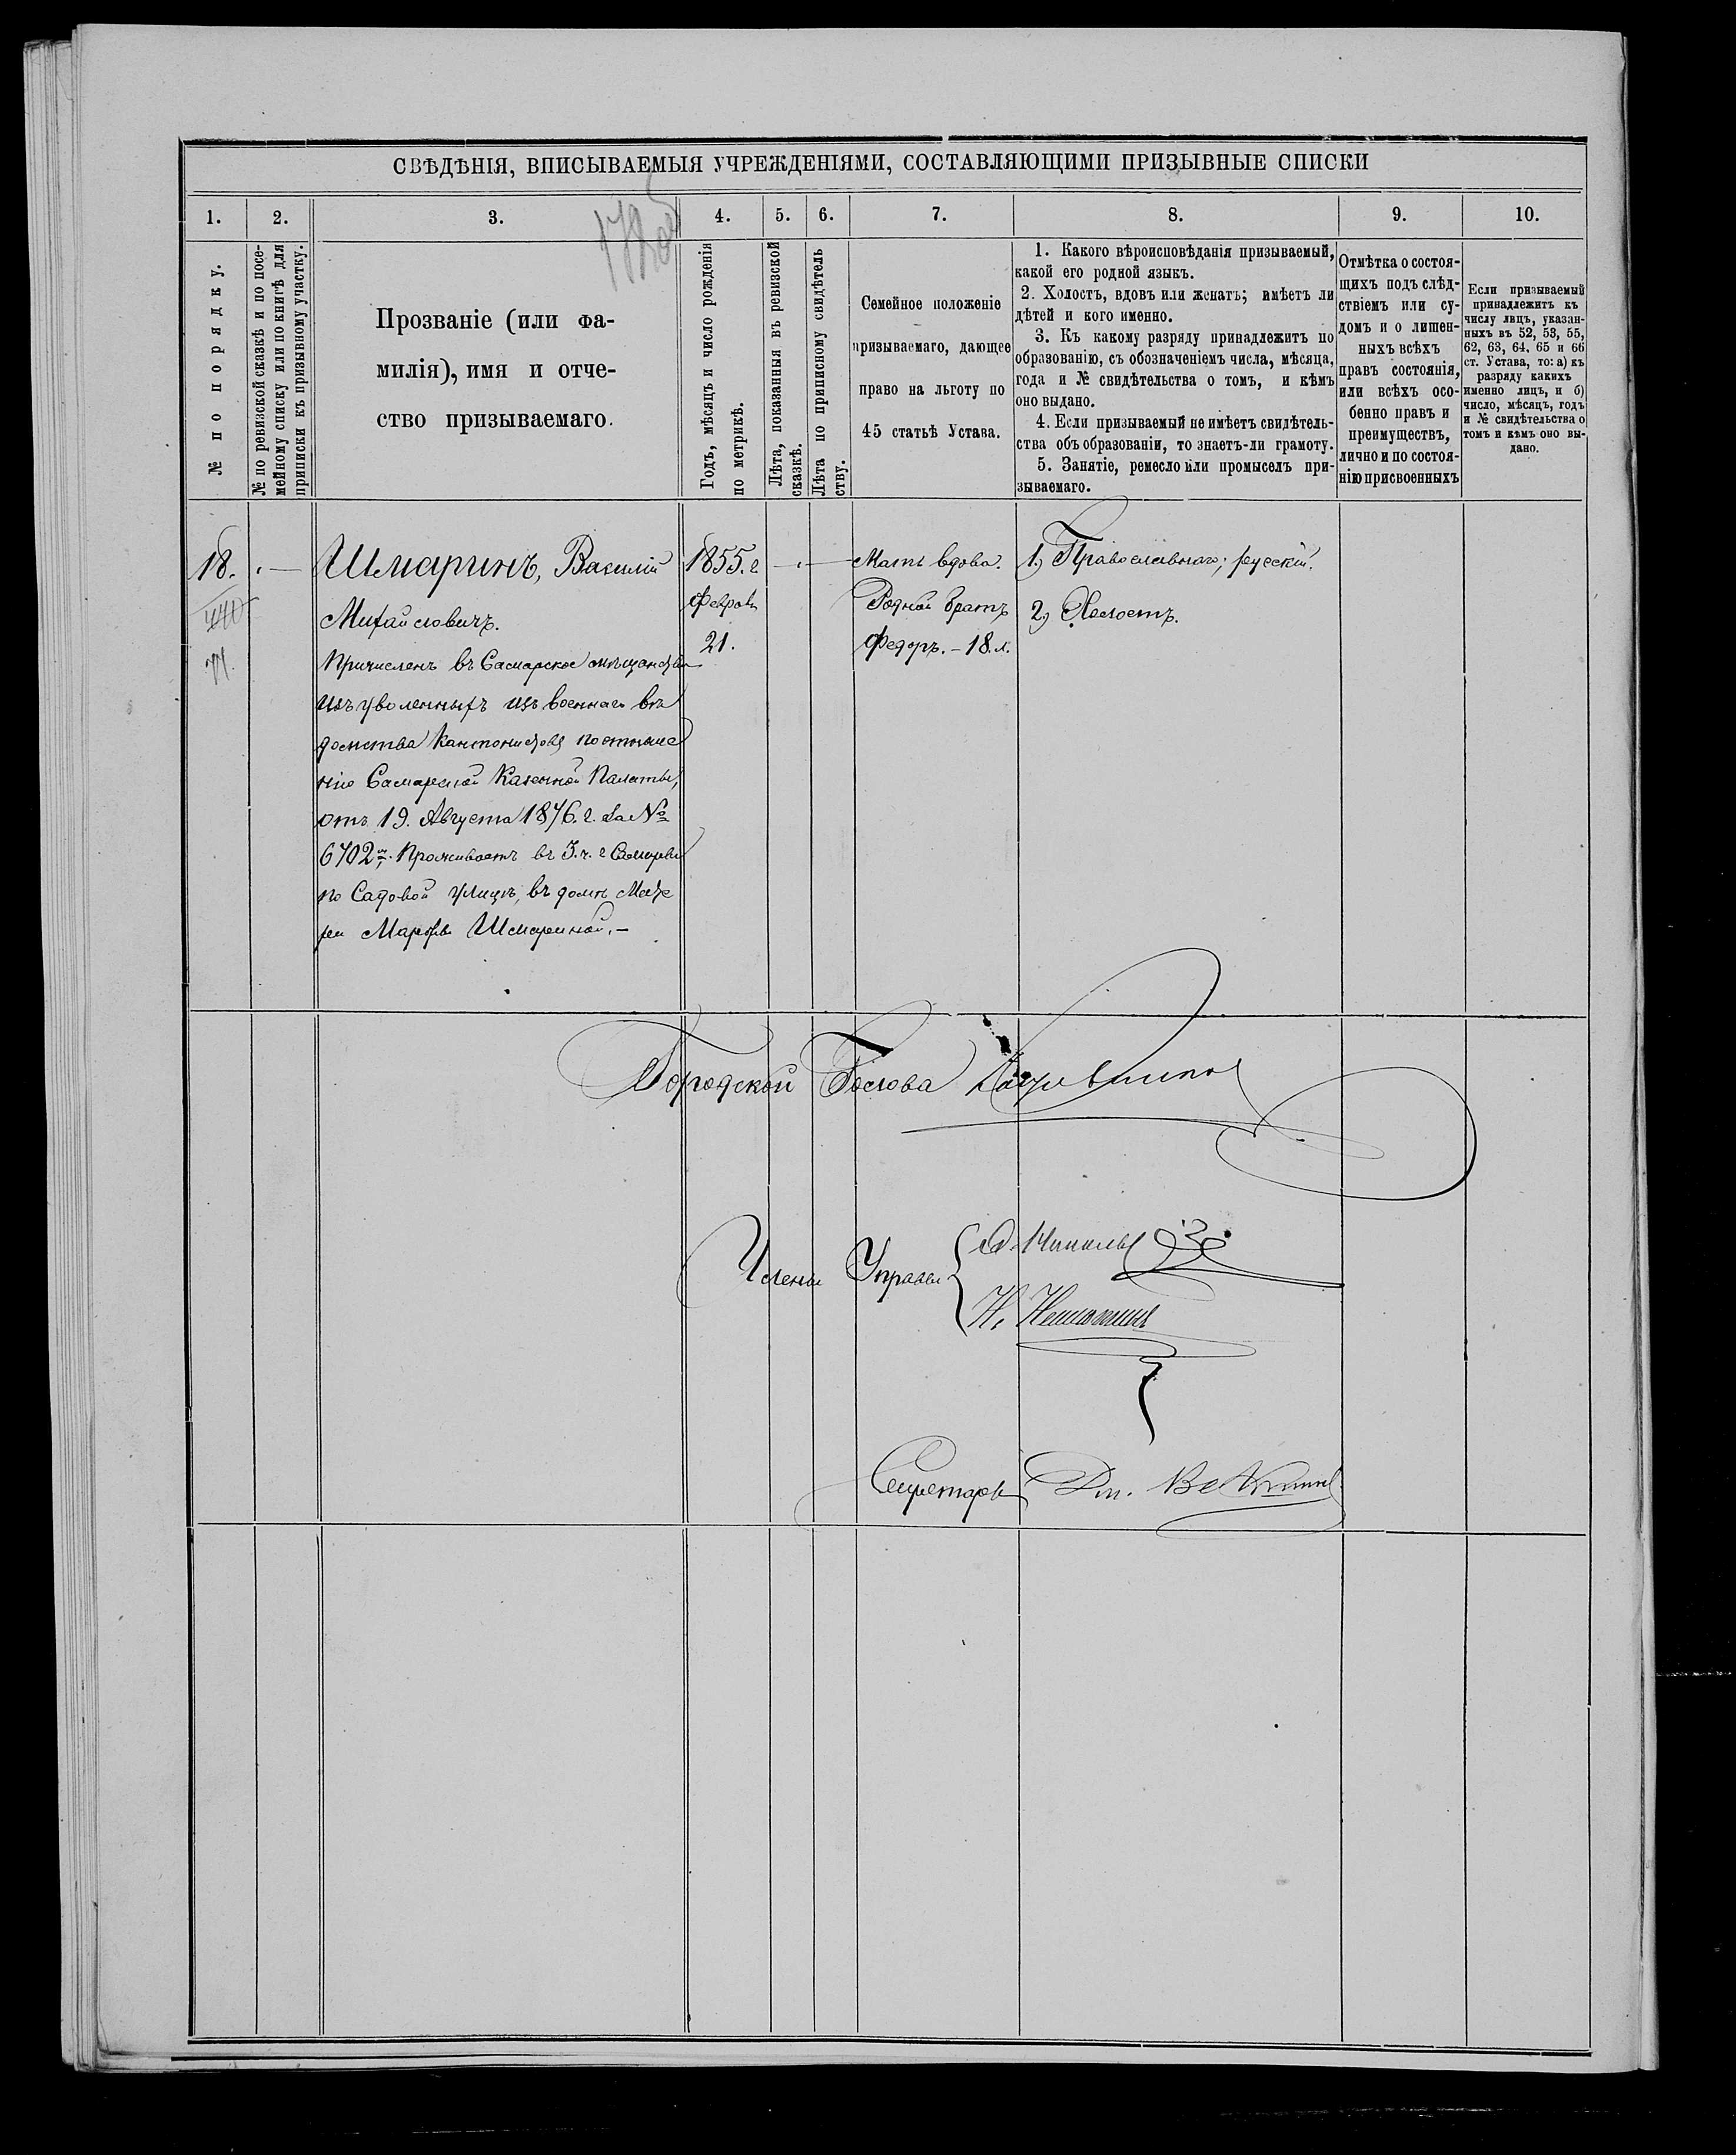 СВѢДѢНІЯ, ВПИСЫВАЕМЫЯ УЧРЕЖДЕНІЯМИ, СОСТАВЛЯЮЩИМИ ПРИЗЫВНЫЕ СПИСКИ
1. 2. 3. 4. 5. 6. 7. 8. 9. 10.
№ по порядку.
№ по ревизской сказкѣ и по посе-
мейному списку или по книгѣ для
приписки къ призывному участку.
Прозваніе (или фа-
милія), имя и отче-
ство призываемаго.
Годъ, мѣсяцъ и число рожденія
по метрикѣ.
Лѣта, показанныя въ ревизской
сказкѣ.
Лѣта по приписному свидѣтель
ству.
Семейное положеніе
призываемаго, дающее
право на льготу по
45 статьѣ Устава.
1. Какого вѣроисповѣданія призываемый,
какой его родной языкъ.
2. Холостъ, вдовъ или женатъ; имѣетъ ли
дѣтей и кого именно.
3. Къ какому разряду принадлежитъ по
образованію, съ обозначеніемъ числа, мѣсяца,
года и № свидѣтельства о томъ, и кѣмъ
оно выдано.
4. Если призываемый не имѣетъ свидѣтель-
ства объ образованіи, то знаетъ-ли грамоту.
5. Занятіе, ремесло или промыселъ при-
зываемаго.
Отмѣтка о состоя-
щихъ подъ слѣд-
ствіемъ или су-
домъ и о лишен-
ныхъ всѣхъ
правъ состоянія,
или всѣхъ осо-
бенно правъ и
преимуществъ,
лично и по состоя-
нію присвоенныхъ
Если призываемый
принадлежитъ къ
числу лицъ, указан-
ныхъ въ 52, 53, 55,
62, 63, 64, 65 и 66
ст. Устава, то: а) къ
разряду какихъ
именно лицъ, и б)
число, мѣсяцъ, годъ
и № свидѣтельства о
томъ и кѣмъ оно вы-
дано.
18. . — Шмаринъ, Василій
Михайловичъ.
Причисленъ въ Самарское мѣщанство
изъ уволенныхъ изъ военнаго вѣ
домства кантонистовъ по отноше
нію Самарской Казенной Палаты,
отъ 19. Августа 1876. г. за №
6702. Проживаетъ въ 3. ч. г Самары
по Садовой улицѣ, въ домѣ Мате
ри Марфы Шмариной. —
1855. г
Февраля
21.
Мать вдова.
Родной братъ
Федоръ. — 18. л.
1, Православнаго; русскій.
2, Холостъ.
Городской Голова
Члены Управы
Секретарь Дм.